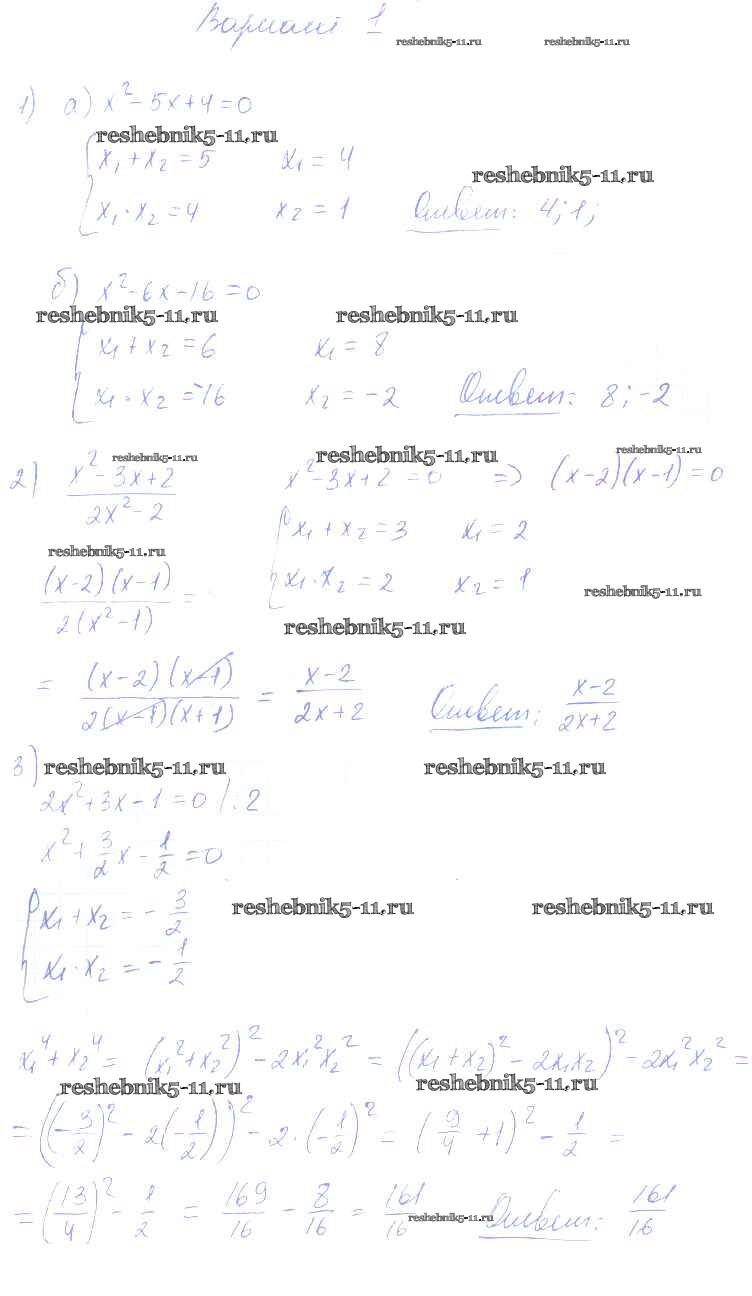 Вариант 1
reshebnik5-11.ru reshebnik5-11.ru
1) а) x² - 5x + 4 = 0
reshebnik5-11.ru
x₁ + x₂ = 5 x₁ = 4
reshebnik5-11.ru
x₁ · x₂ = 4 x₂ = 1 Ответ: 4; 1;
б) x² - 6x - 16 = 0
reshebnik5-11.ru reshebnik5-11.ru
x₁ + x₂ = 6 x₁ = 8
x₁ · x₂ = -16 x₂ = -2 Ответ: 8; -2
reshebnik5-11.ru reshebnik5-11.ru reshebnik5-11.ru
2) (x² - 3x + 2)/(2x² - 2) x² - 3x + 2 = 0 => (x-2)(x-1) = 0
x₁ + x₂ = 3 x₁ = 2
reshebnik5-11.ru
(x-2)(x-1)/(2(x²-1)) = x₁ · x₂ = 2 x₂ = 1
reshebnik5-11.ru
reshebnik5-11.ru
= (x-2)(x-1)/(2(x-1)(x+1)) = (x-2)/(2x+2) Ответ: (x-2)/(2x+2)
3) reshebnik5-11.ru reshebnik5-11.ru
2x² + 3x - 1 = 0 | : 2
x² + 3/2 x - 1/2 = 0
x₁ + x₂ = - 3/2
reshebnik5-11.ru reshebnik5-11.ru
x₁ · x₂ = - 1/2
x₁⁴ + x₂⁴ = (x₁² + x₂²)² - 2x₁²x₂² = ((x₁ + x₂)² - 2x₁x₂)² - 2x₁²x₂² =
reshebnik5-11.ru reshebnik5-11.ru
= ((-3/2)² - 2(-1/2))² - 2 · (-1/2)² = (9/4 + 1)² - 1/2 =
= (13/4)² - 1/2 = 169/16 - 8/16 = 161/16 Ответ: 161/16
reshebnik5-11.ru